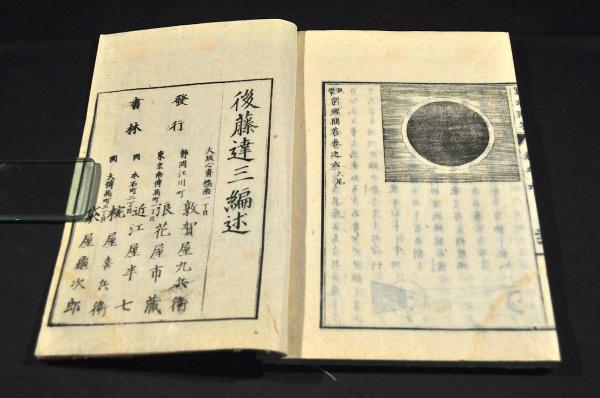 訓蒙窮理問答巻之六大尾
後藤達三編述
發行
書林
大坂心齋橋南一丁目
敦賀屋九兵衛
静岡江川町
浪花屋市蔵
東京南傳馬町
近江屋半七
同 本石町二丁目
椀屋喜兵衛
同 大傳馬町
屋龜次郎